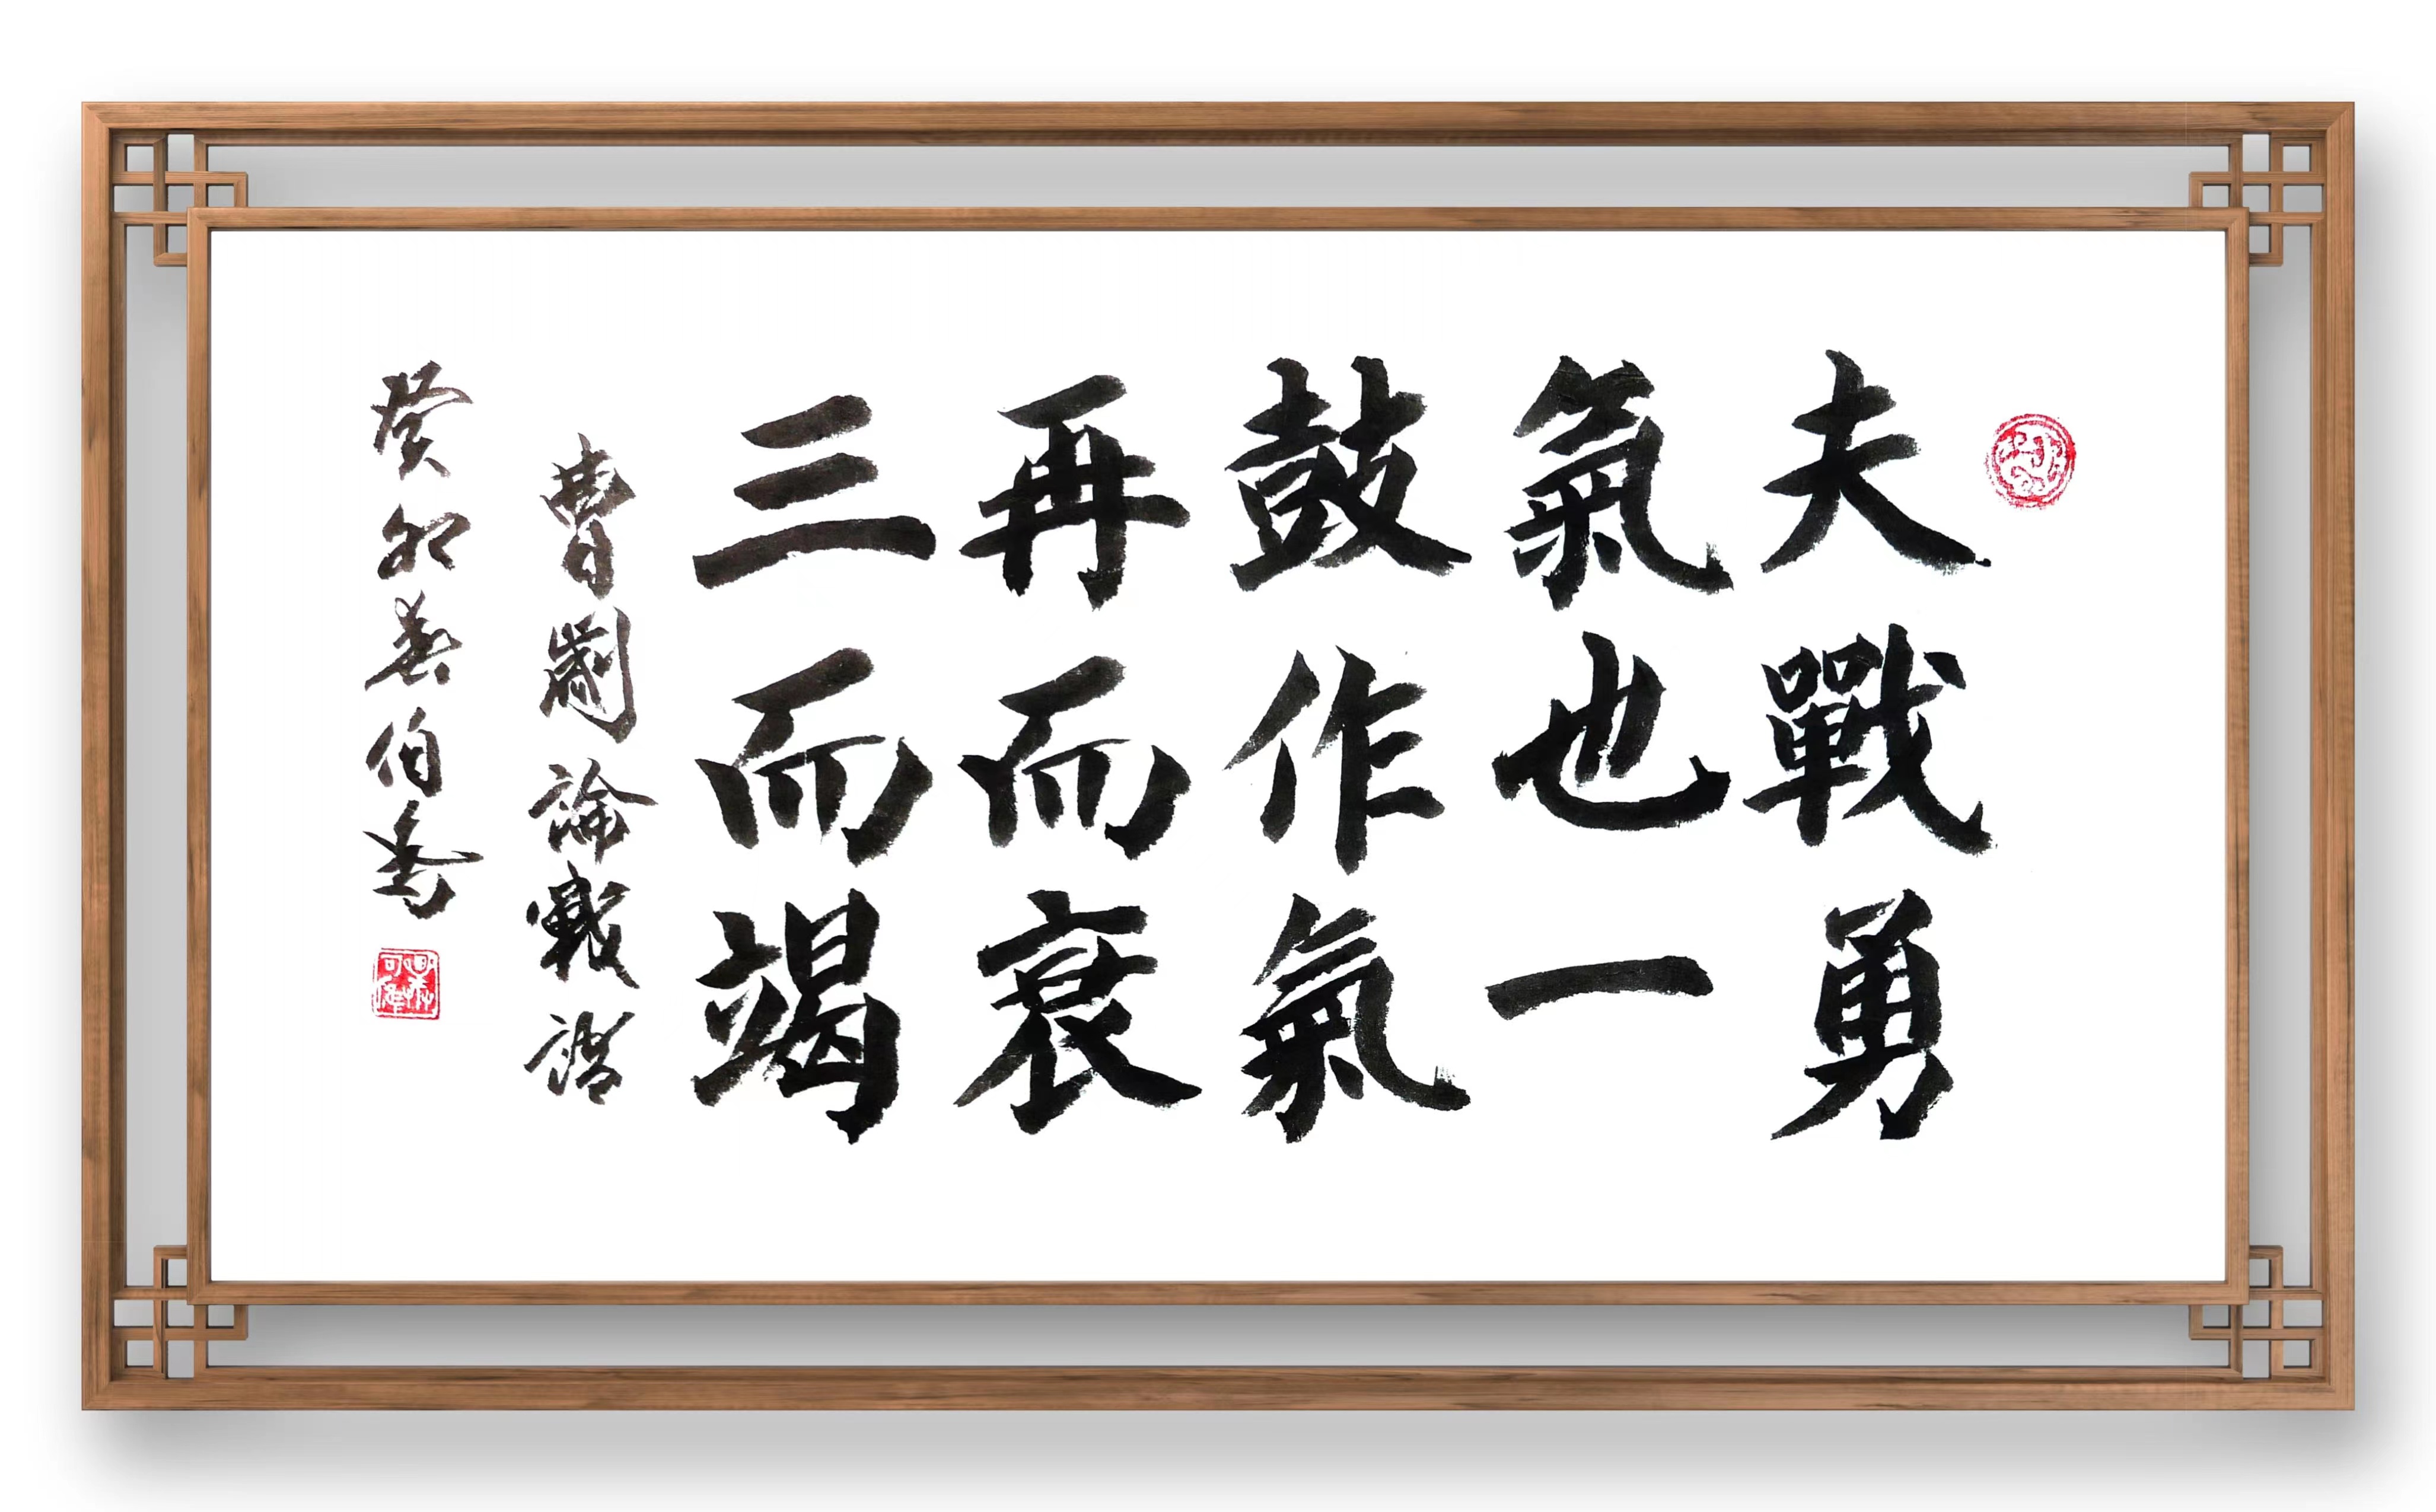 夫戰勇
氣也一
鼓作氣
再而衰
三而竭
曹劌論戰語
癸卯春伯秀